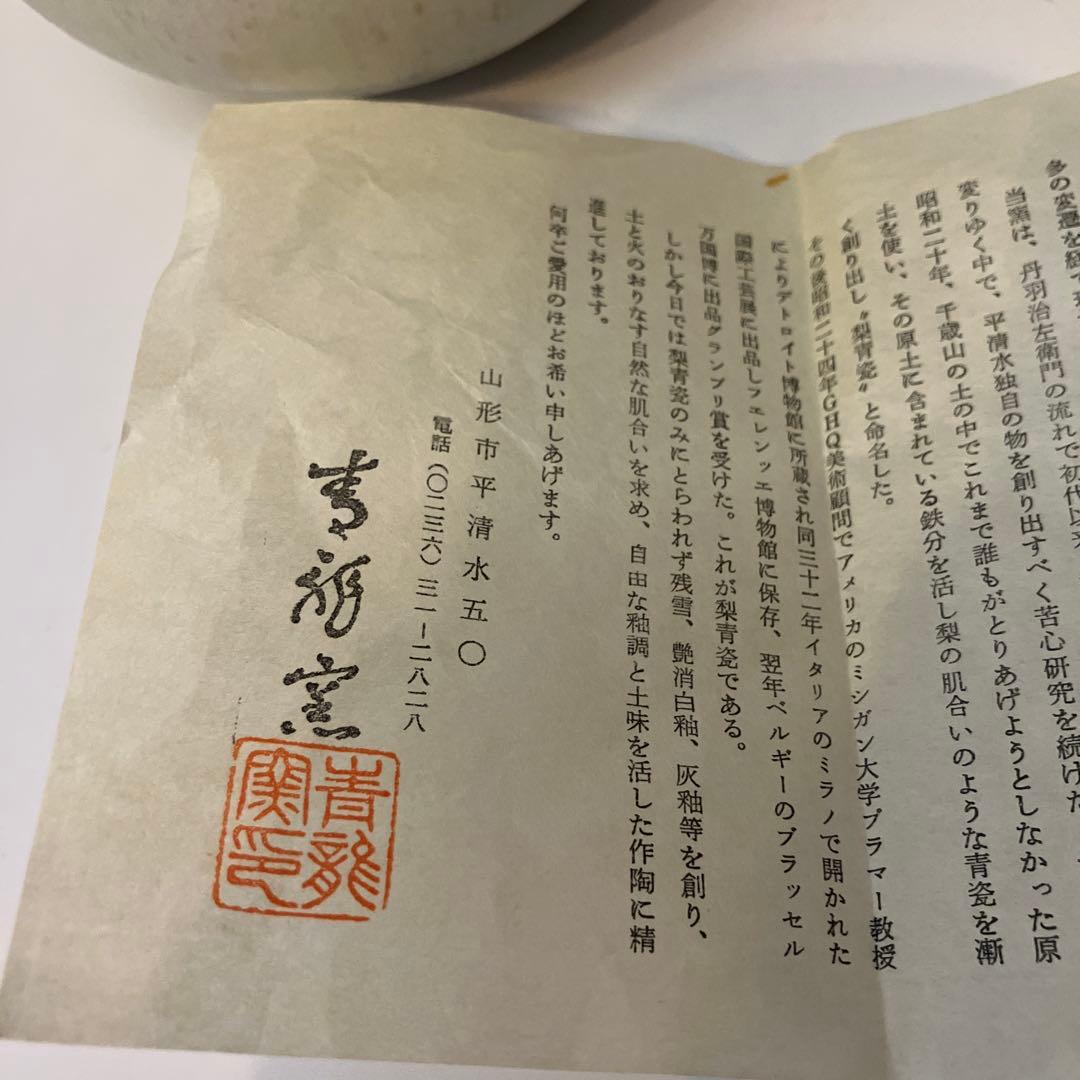 多の変遷を経て
当窯は、丹羽治左衛門の流れで初代以来
変りゆく中で、平清水独自の物を創り出すべく苦心研究を続けた
昭和二十年、千歳山の土の中でこれまで誰もがとりあげようとしなかった原
土を使い、その原土に含まれている鉄分を活し梨の肌合いのような青瓷を漸
く創り出し〝梨青瓷〟と命名した。
その後昭和二十四年GHQ美術顧問でアメリカのミシガン大学プラマー教授
によりデトロイト博物館に所蔵され同三十二年イタリアのミラノで開かれた
国際工芸展に出品しフェレンッエ博物館に保存、翌年ベルギーのブラッセル
万国博に出品グランプリ賞を受けた。これが梨青瓷である。
しかし今日では梨青瓷のみにとらわれず残雪、艶消白釉、灰釉等を創り、
土と火のおりなす自然な肌合いを求め、自由な釉調と土味を活した作陶に精
進しております。
何卒ご愛用のほどお希い申しあげます。
山形市平清水五〇
電話(〇二三六)三一ー二八二八
青龍窯
青龍
窯印